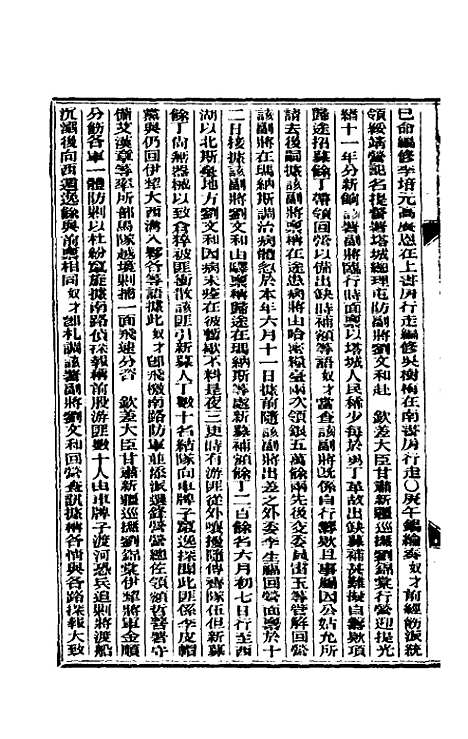 已命編修李培元高賡恩在上書房行走編修吳樹梅在南書房行走○庚午錫綸奏奴才前經飭派統
領綏靖營記名提督署塔城總理屯防副將劉文和赴　欽差大臣甘肅新疆巡撫劉錦棠行營迎提光
緒十一年分新餉該署副將臨行時面稟以塔城人民稀少每於勇丁革故出缺募補甚難擬自籌款項
歸途招募餘丁帶領回營以備出缺時補額等語奴才當查該副將既係自行籌款且事屬因公姑允所
請去後嗣據該副將稟稱在途患病將由哈密糧臺兩次領銀五萬餘兩先後交委員出玉等管解回營
該副將在瑪納斯調治病體忽於本年六月十一日據前隨該副將出差之外委李生福回營面稟於十
二日接據該副將劉文和由驛稟稱歸途在瑪納斯等處新募補額餘丁二百餘名六月初七日行至西
湖以北斯奧地方劉文和因病未痊在彼暫歇不料是夜三更時有游匪從外嘩擾隨傳齊隊伍但新募
餘丁尚無器械以致倉猝被匪衝散該匪引新募人丁數十名結隊向車牌子竄逸探聞此匪係李皮帽
黨與仍回伊犂大西溝入夥各等語據此奴才卽飛檄南路防軍並添派選鋒營營總佐領額哲署守
備艾漢章等率所部馬隊越境剿捕一面飛速分咨　欽差大臣甘肅新疆巡撫劉錦棠伊犂將軍金順
分飭各軍一體防剿以杜紛竄旋據南路偵探報稱前股游匪數十人由車牌子渡河恐兵追剿將渡船
沉溺後向西遁逸餘與前稟相同奴才卽札調該署副將劉文和回營查訊據稱各情與各路探報大致